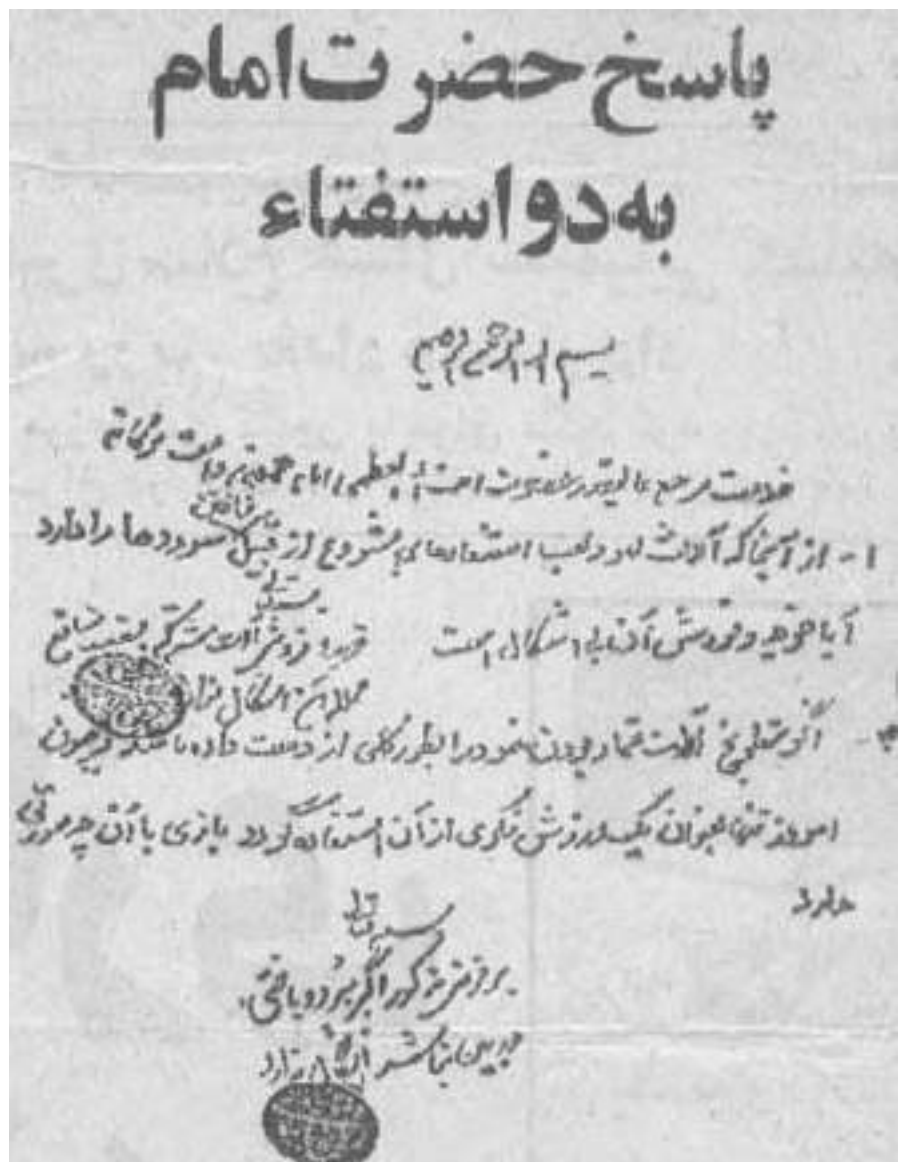 پاسخ حضرت امام
به دو استفتاء
بسم الله الرحمن الرحیم
خدمت مرجع عالیقدر حضرت آیت الله العظمی امام خمینی دامت برکاته
۱- از آنجا که آلات لهو و لعب استفاده‌های مشروع از قبیل سرودها را دارد
آیا خرید و فروش آن بی اشکال است
بسمه تعالی
خرید و فروش آلات مشترکه بقصد منافع
محلله آن اشکال ندارد
اگر شطرنج آلت قمار بودن خود را بطور کلی از دست داده باشد و چون
امروز تنها بعنوان یک ورزش فکری از آن استفاده گردد بازی با آن چه صورتی
دارد
بسمه تعالی
بر فرض مذکور اگر برد و باختی
در بین نباشد اشکال ندارد